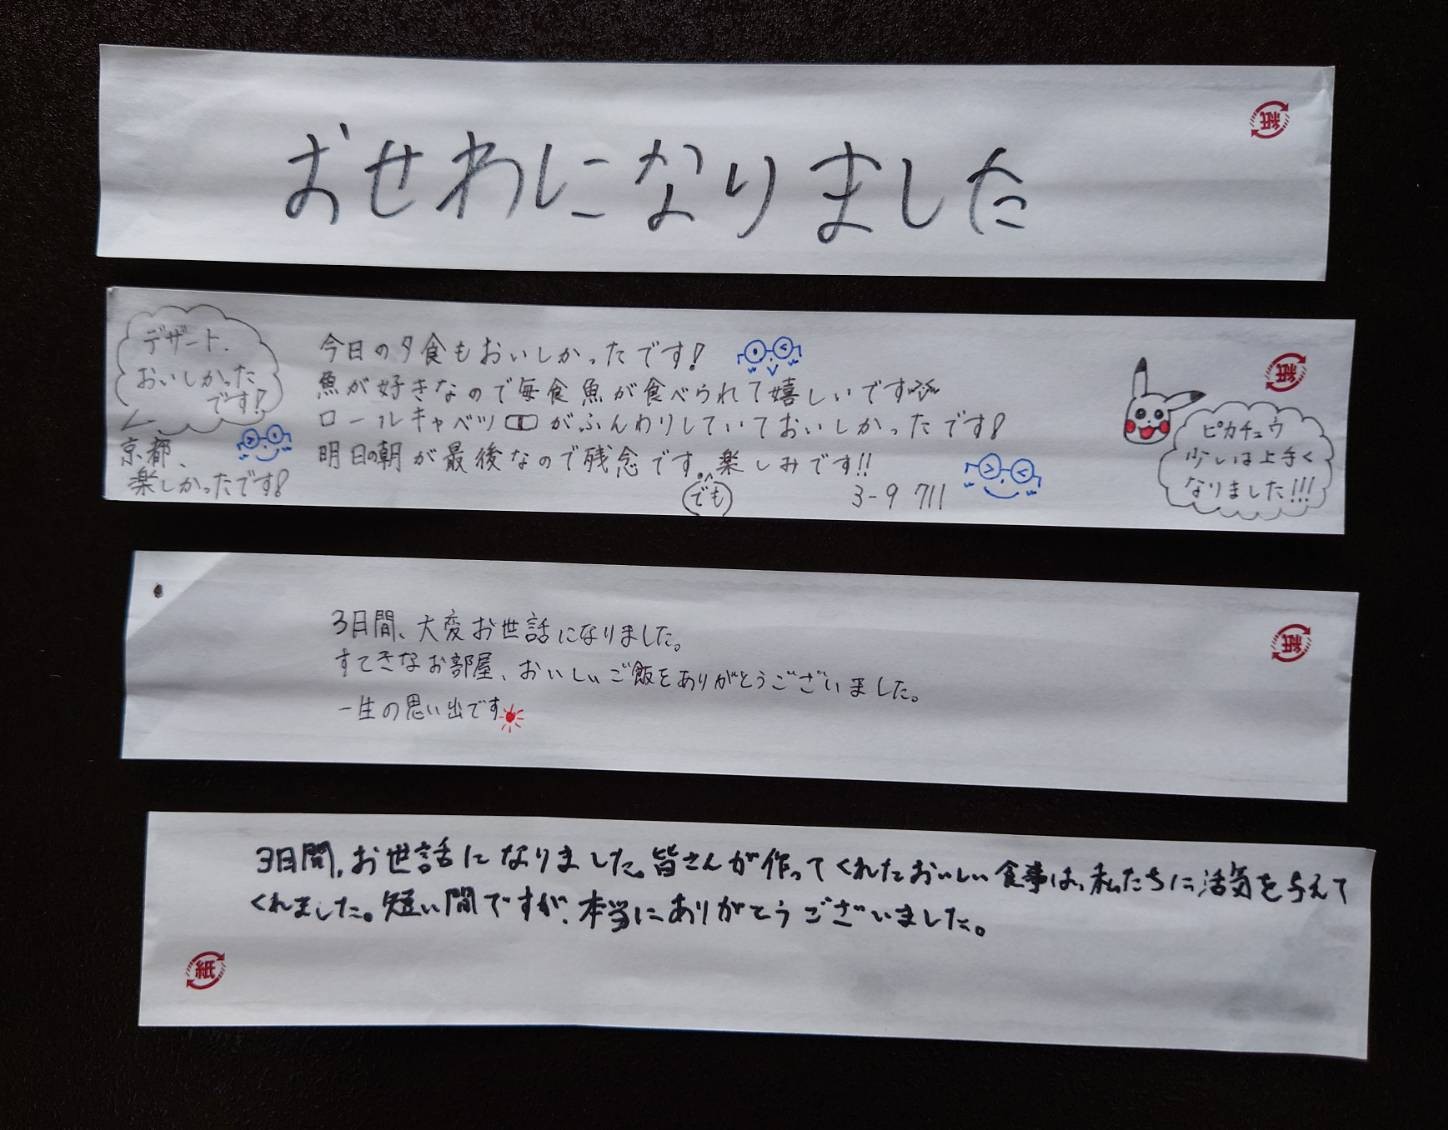 おせわになりました
紙
デザート、
おいしかった
です!
京都、
楽しかったです!
今日の夕食もおいしかったです!
魚が好きなので毎食魚が食べられて嬉しいです
ロールキャベツがふんわりしていておいしかったです!
明日の朝が最後なので残念です。でも楽しみです!!
3-9 711
紙
ピカチュウ
少しは上手く
なりました!!!
3日間、大変お世話になりました。
すてきなお部屋、おいしいご飯をありがとうございました。
一生の思い出です
紙
3日間、お世話になりました。皆さんが作ってくれたおいしい食事は、私たちに活気を与えて
くれました。短い間ですが、本当にありがとうございました。
紙